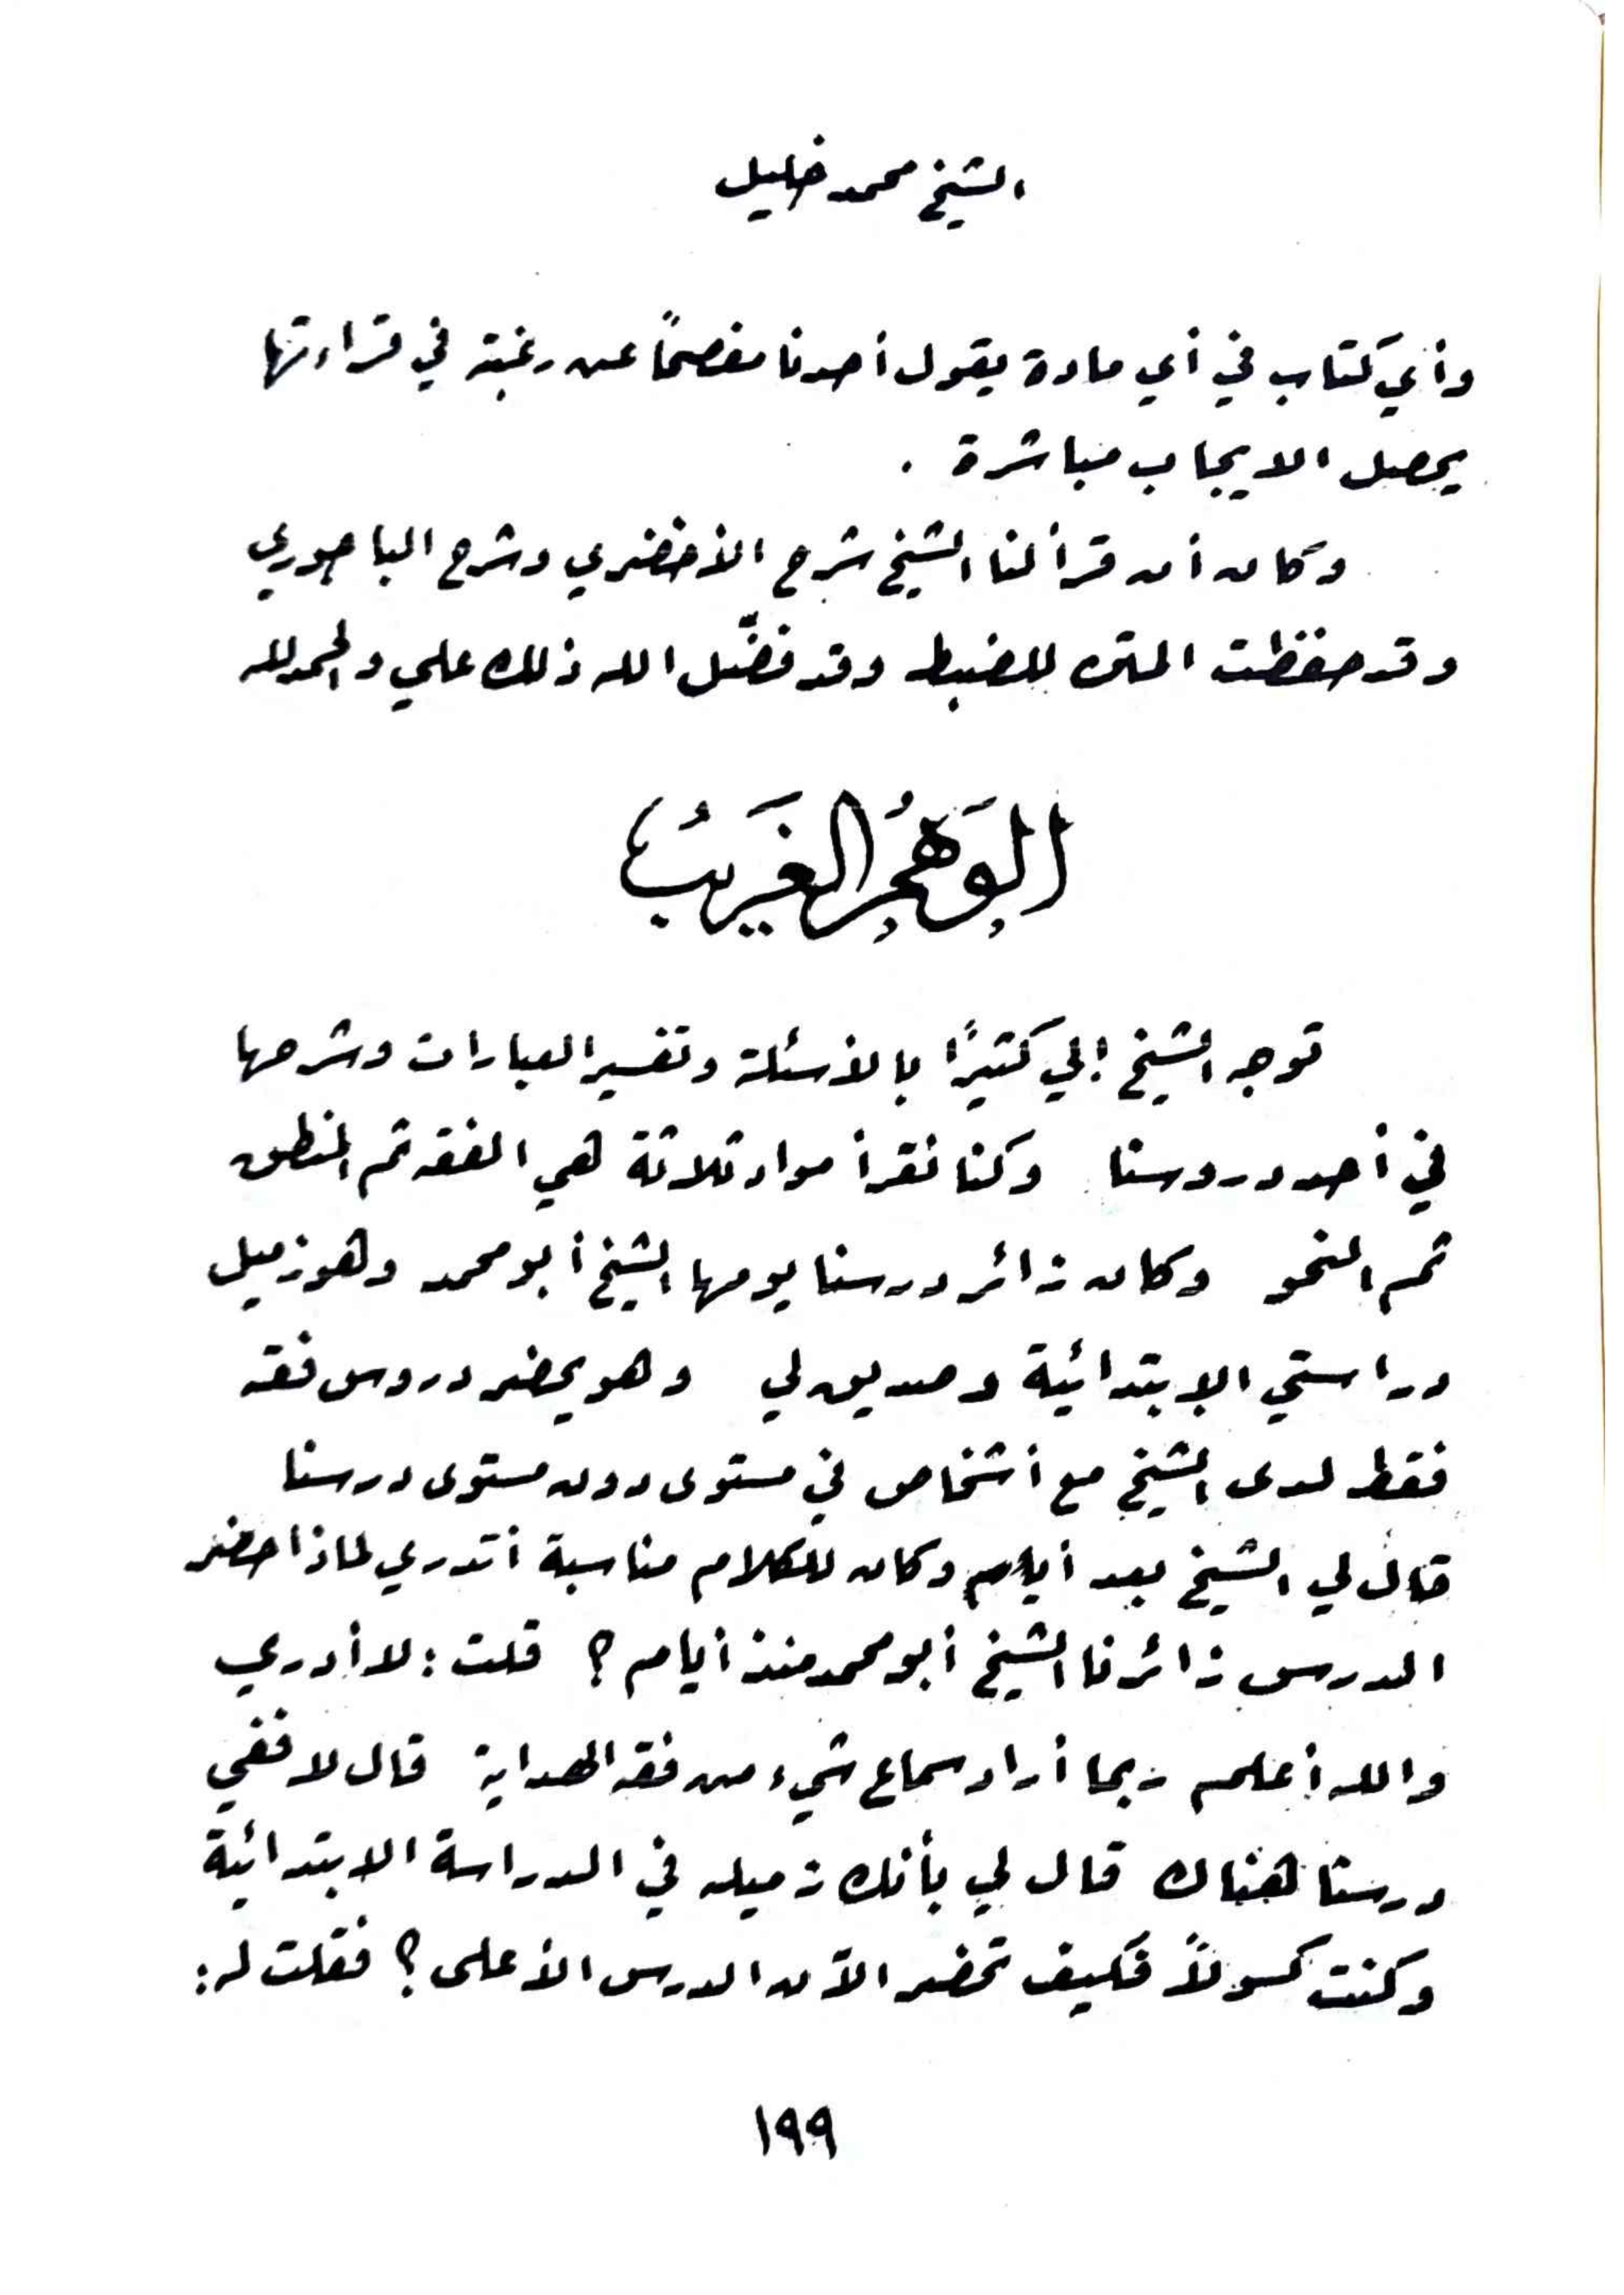 الشيخ محمد خليل
وأي كتاب في أي مادة يقول أحدنا مفصحاً عن رغبته في قراءتها
يحصل الايجاب مباشرة .
وكان أن قرأ لنا الشيخ شرح الأخضري وشرح الباجوري
وقد حفظت المتن للضبط وقد فضّل الله ذلك علي والحمد لله
الوَهْمُ الغَرِيبُ
توجه الشيخ إلي كثيرًا بالأسئلة وتفسير العبارات وشرحها
في أحد دروسنا وكنا نقرأ مواد ثلاثة هي الفقه ثم المنطق
ثم النحو وكان زائر درسنا يومها الشيخ أبو محمد وهو زميل
دراستي الابتدائية وصديق لي وهو يحضر دروس فقه
فقط لدى الشيخ مع أشخاص في مستوى دون مستوى درسنا
قال لي الشيخ بعد أيام وكان للكلام مناسبة أتدري لماذا حضر
الدرس زائرنا الشيخ أبو محمد منذ أيام ؟ قلت : لا أدري
والله أعلم ربما أراد سماع شيء من فقه الهداية قال لا ففي
درسنا هناك قال لي بأنك زميله في الدراسة الابتدائية
وكنت كسولاً فكيف تحضر الآن الدرس الأعلى ؟ فقلت له :
١٩٩